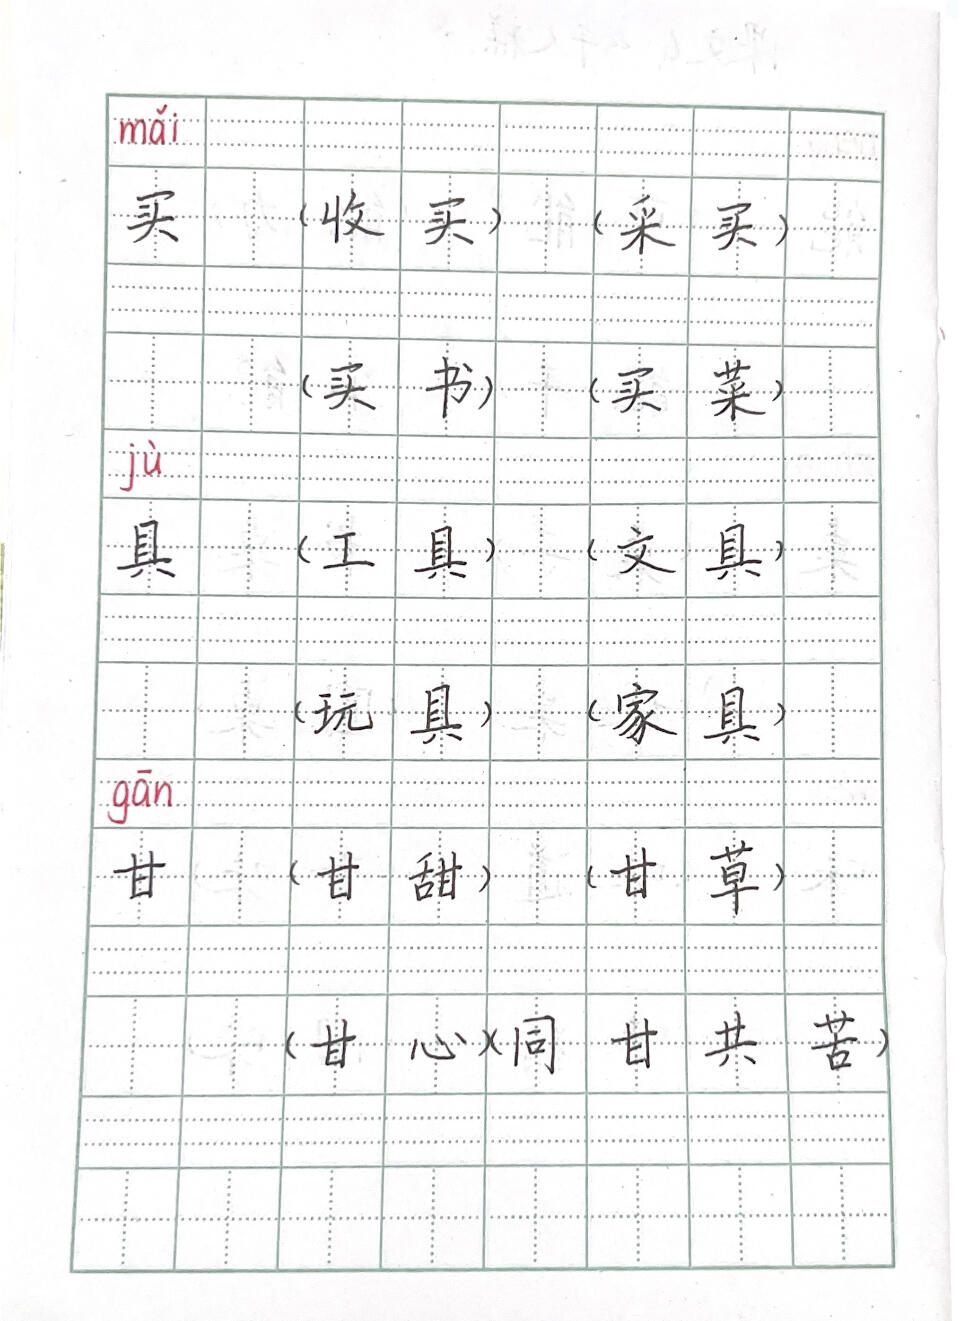 mǎi
买 (收买) (采买)
(买书) (买菜)
jù
具 (工具) (文具)
(玩具) (家具)
gān
甘 (甘甜) (甘草)
(甘心)(同甘共苦)